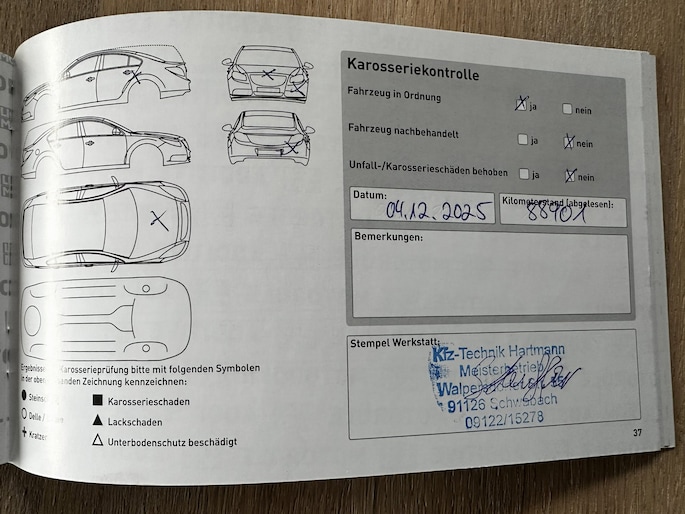 Karosseriekontrolle
Fahrzeug in Ordnung
ja
nein
Fahrzeug nachbehandelt
ja
nein
Unfall-/Karosserieschäden behoben
ja
nein
Datum:
04.12.2025
Kilometerstand (abgelesen):
88901
Bemerkungen:
Stempel Werkstatt:
Kfz-Technik Hartmann
Meisterbetrieb
91126 Schwabach
09122/15278
Karosserieprüfung bitte mit folgenden Symbolen
in der Zeichnung kennzeichnen:
Karosserieschaden
Delle
Lackschaden
Kratzer
Unterbodenschutz beschädigt
37